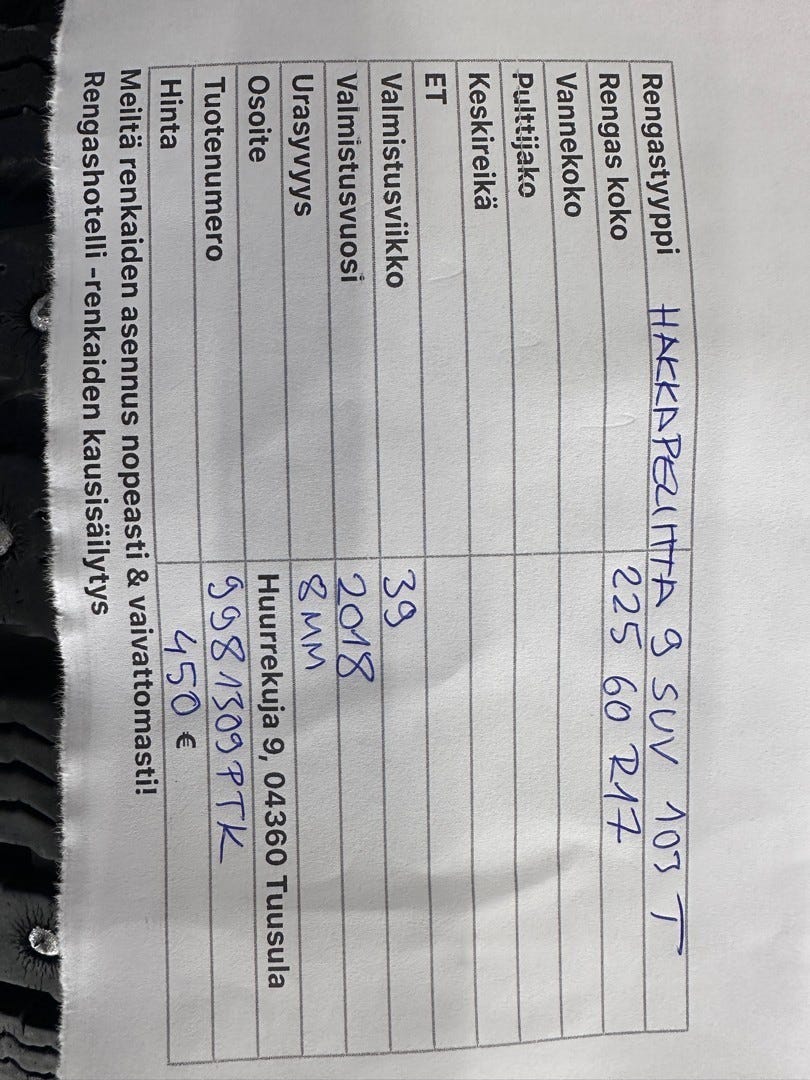 Rengastyyppi HAKKAPELIITTA 9 SUV 103 T
Rengas koko 225 60 R17
Vannekoko
Pulttijako
Keskireikä
ET
Valmistusviikko 39
Valmistusvuosi 2018
Urasyvyys 8 MM
Osoite Huurrekuja 9, 04360 Tuusula
Tuotenumero 9981309PTK
Hinta 450 €
Meiltä renkaiden asennus nopeasti & vaivattomasti!
Rengashotelli -renkaiden kausisäilytys